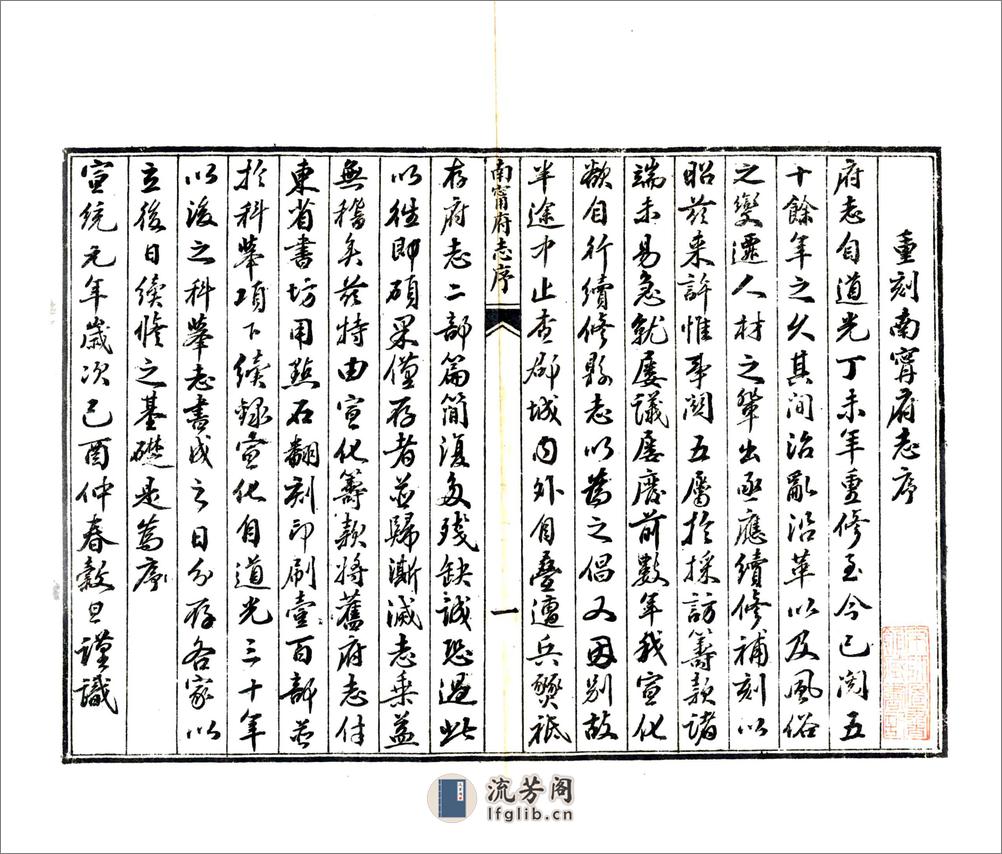 重刻南甯府志序
府志自道光丁未年重修至今已閱五
十餘年之久其间治亂沿革以及風俗
之變遷人材之輩出亟應續修補刻以
昭茲来許惟事関五屬於採訪籌款諸
端未易急就屡議屡廢前數年我宣化
欵自行續修縣志以為之倡又因别故
半途中止查郡城内外自叠遭兵燹祇
南甯府志序
一
存府志二部篇簡復多残缺誠恐過此
以徃即碩果僅存者並歸漸滅志乘益
無稽矣茲特由宣化籌款將舊府志付
東省書坊用點石翻刻印刷壹百部並
於科举項下續録宣化自道光三十年
以後之科举志書成之日分存各家以
立後日續修之基礎是為序
宣统元年歲次己酉仲春穀旦謹識
流芳阁
lfglib.cn